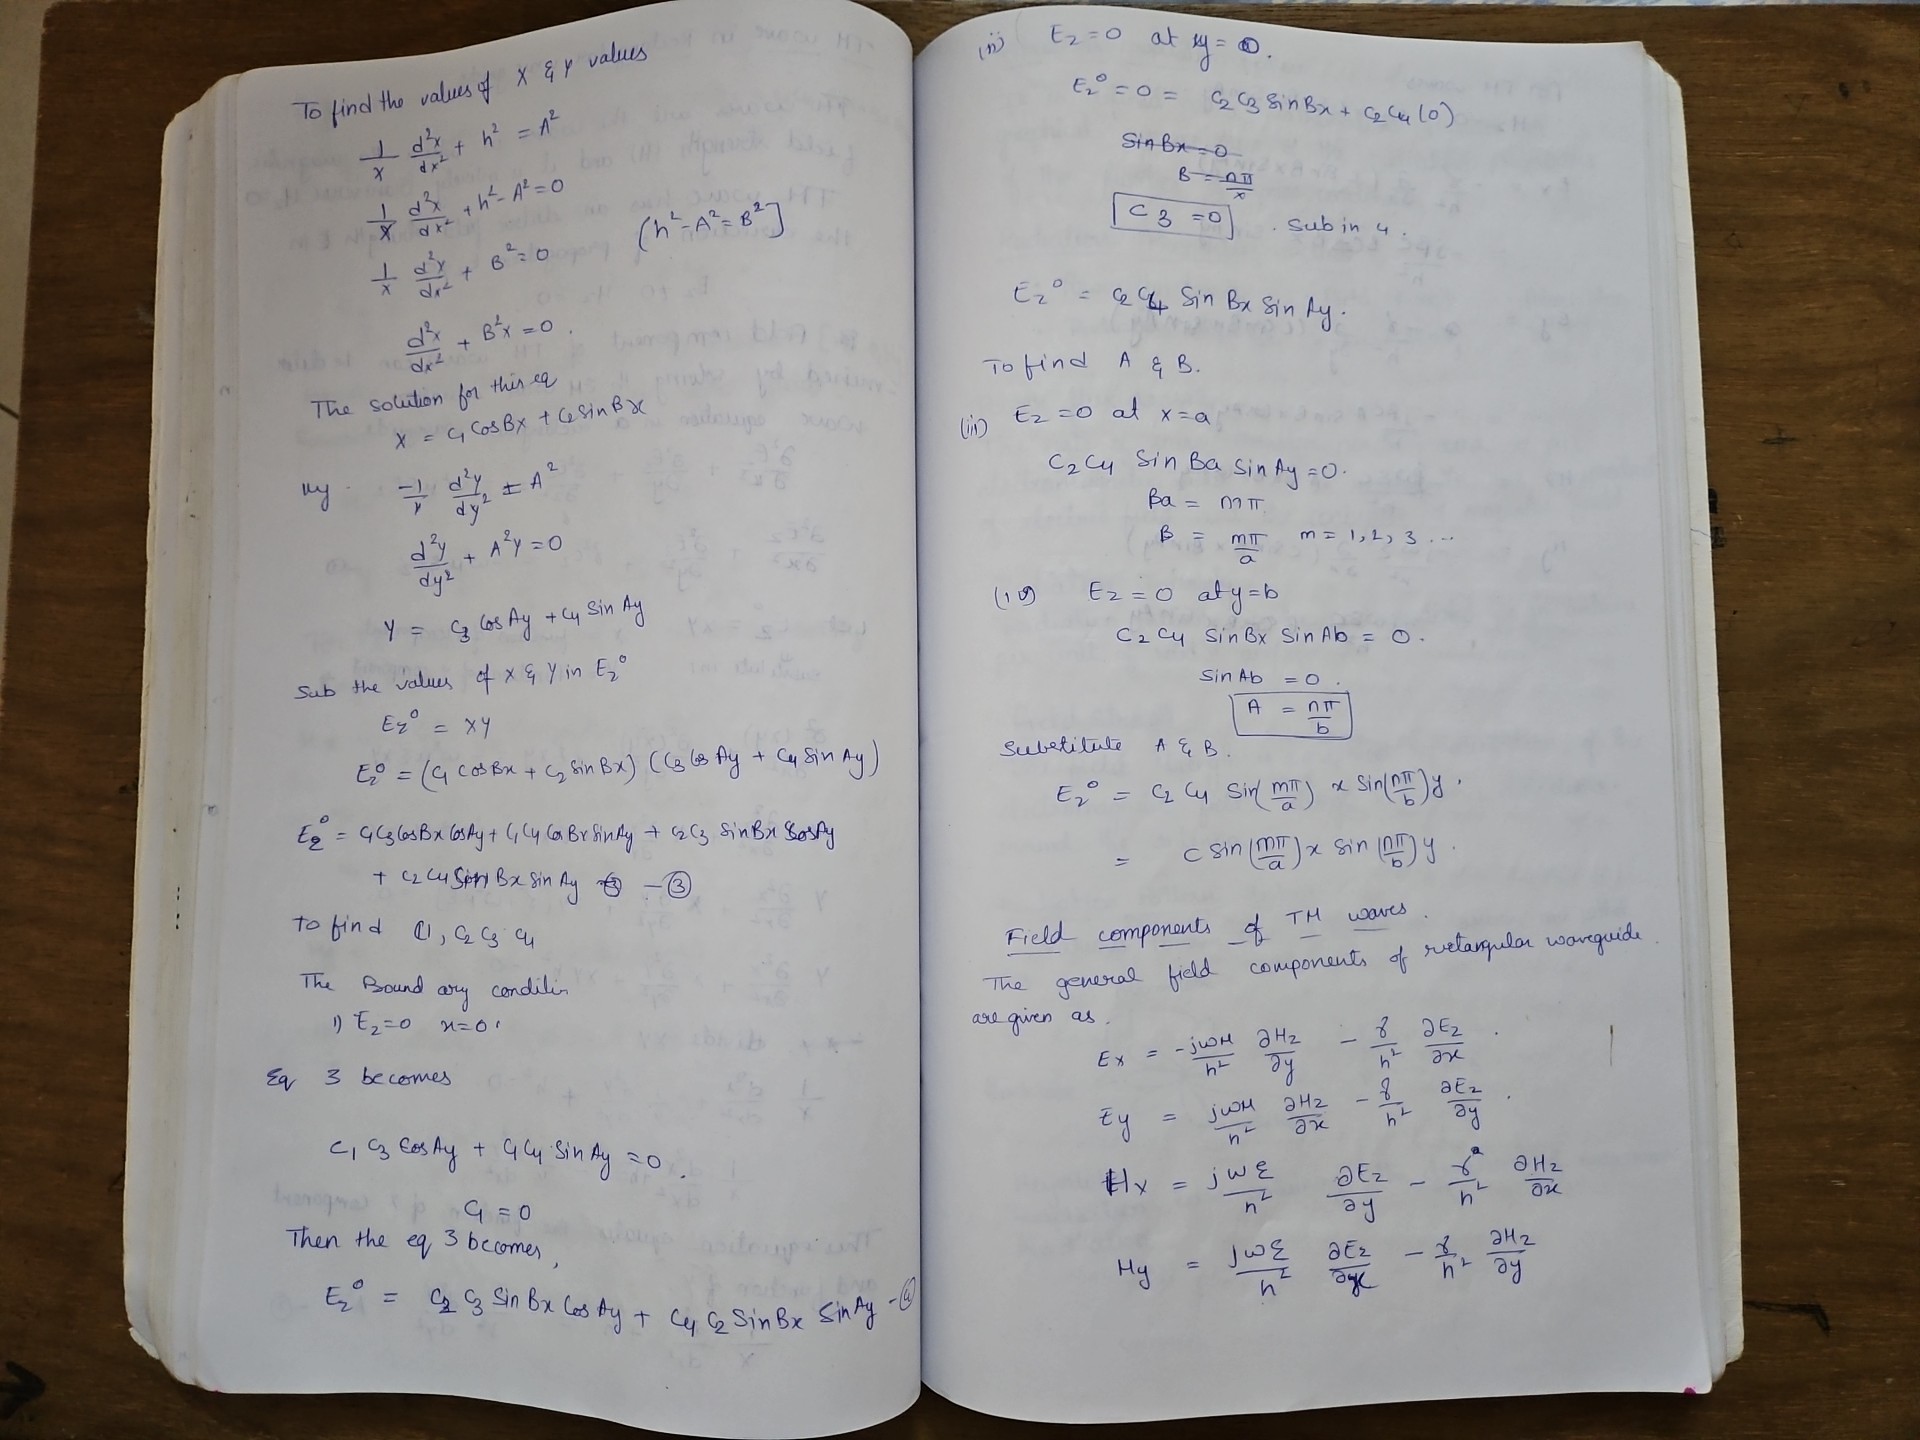 To find the values of X & Y values
1/X d²x/dx² + h² = A²
1/X d²x/dx² + h² - A² = 0
1/X d²x/dx² + B² = 0 (h² - A² = B²]
d²x/dx² + B²x = 0.
The solution for this eq
X = C1 CosBx + C2 SinBx
lly. -1/Y d²y/dy² = A²
d²y/dy² + A²Y = 0
Y = C3 Cos Ay + C4 Sin Ay
Sub the values of X & Y in Ez⁰
Ez⁰ = XY
Ez⁰ = (C1 CosBx + C2 SinBx) (C3 Cos Ay + C4 Sin Ay)
Ez⁰ = C1C3 CosBx CosAy + C1C4 CosBx SinAy + C2C3 SinBx CosAy
+ C2C4 Sin Bx Sin Ay - ③
To find C1, C2 C3 C4
The Bound ary conditin
1) Ez=0 x=0.
Eq 3 becomes
C1 C3 CosAy + C1C4 Sin Ay = 0.
C1 = 0
Then the eq 3 becomes,
Ez⁰ = C2 C3 Sin Bx Cos Ay + C4 C2 Sin Bx Sin Ay - ④
(ii) Ez = 0 at y = 0.
Ez⁰ = 0 = C2 C3 Sin Bx + C2 C4 (0)
SinBx = 0
B = nπ/x
C3 = 0 . Sub in 4.
Ez⁰ = C2 C4 Sin Bx Sin Ay.
To find A & B.
(iii) Ez = 0 at x = a
C2 C4 Sin Ba Sin Ay = 0.
Ba = mπ
B = mπ/a m = 1, 2, 3 ...
(iv) Ez = 0 at y = b
C2 C4 Sin Bx Sin Ab = 0.
Sin Ab = 0.
A = nπ/b
Substitute A & B.
Ez⁰ = C2 C4 Sin(mπ/a) x Sin(nπ/b) y.
= C Sin(mπ/a) x Sin(nπ/b) y.
Field components of TM waves.
The general field components of rectangular waveguide
are given as.
Ex = -jωμ/h² ∂Hz/∂y - γ/h² ∂Ez/∂x.
Ey = jωμ/h² ∂Hz/∂x - γ/h² ∂Ez/∂y.
Hx = jωε/h² ∂Ez/∂y - γ/h² ∂Hz/∂x
Hy = jωε/h² ∂Ez/∂x - γ/h² ∂Hz/∂y